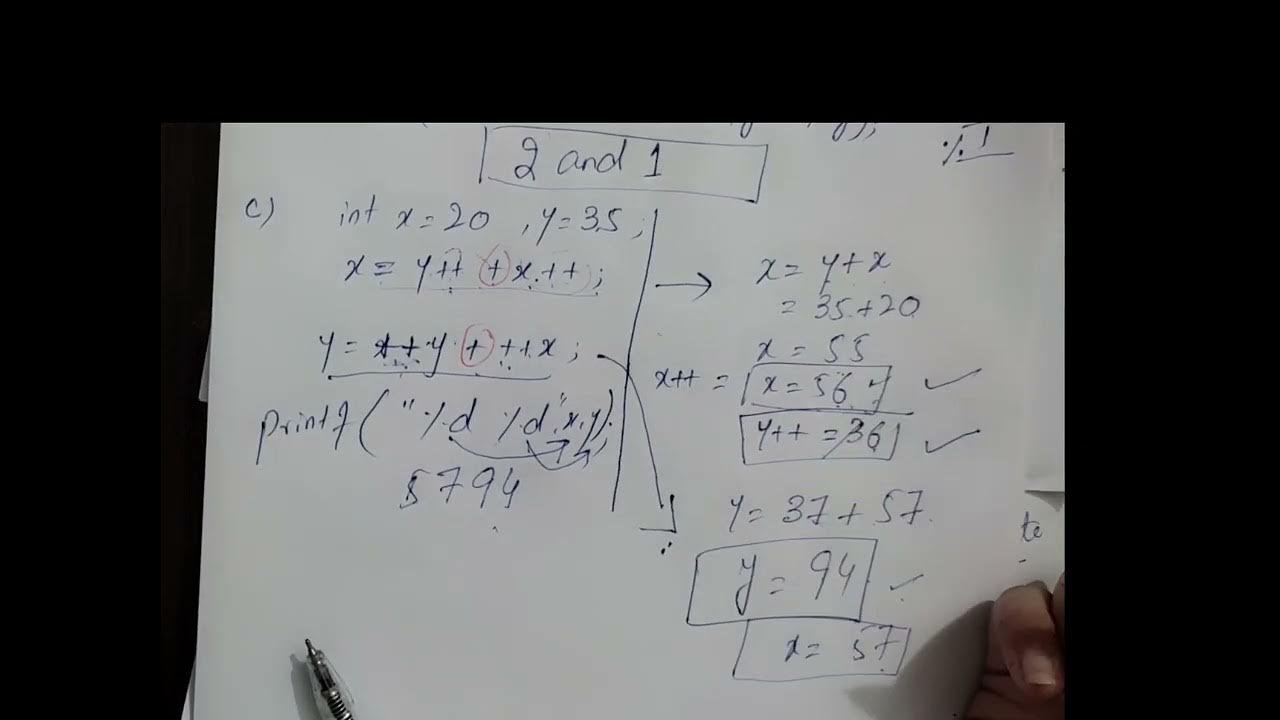 2 and 1
%.I
c) int x=20 , y=35;
x = y++ + x++;
y = ++y + ++x;
printf("%d %d",x,y);
5794
→ x = y+x
= 35+20
x = 55
x++ = x=56
y++ = 36
y = 37 + 57.
y = 94
x = 57
te